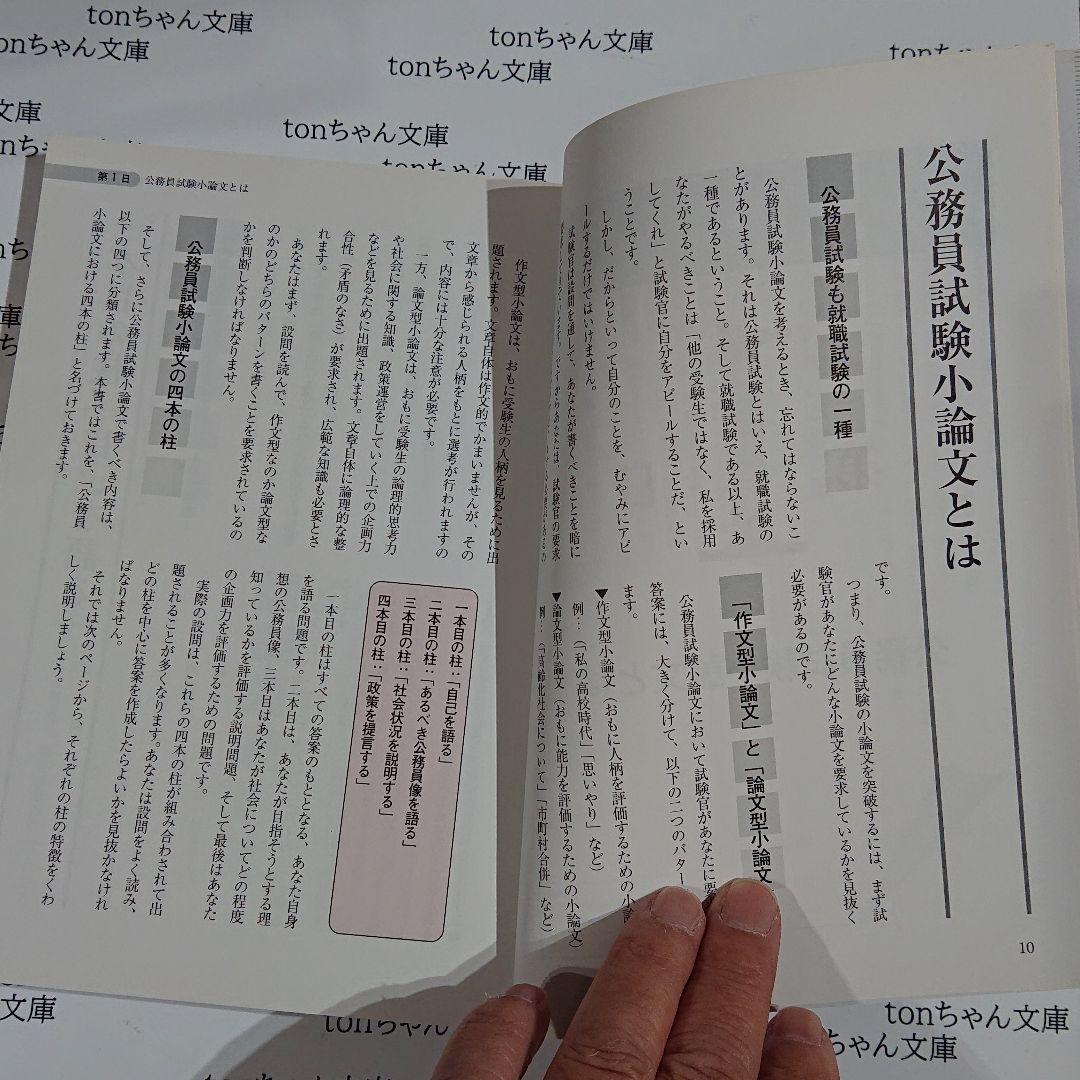 tonちゃん文庫
tonちゃん文庫
tonちゃん文庫
tonちゃん文庫
公務員試験小論文とは
公務員試験も就職試験の一種
公務員試験小論文を考えるとき、忘れてはならないこ
とがあります。それは公務員試験とはいえ、就職試験の
一種であるということ。そして就職試験である以上、あ
なたがやるべきことは「他の受験生ではなく、私を採用
してくれ」と試験官に自分をアピールすることだ、とい
うことです。
しかし、だからといって自分のことを、むやみにアピ
ールするだけではいけません。
試験官は設問を通して、あなたが書くべきことを暗に
です。
つまり、公務員試験の小論文を突破するには、まず試
験官があなたにどんな小論文を要求しているかを見抜く
必要があるのです。
「作文型小論文」と「論文型小論文
公務員試験小論文において試験官があなたに要
答案には、大きく分けて、以下の二つのパター
ます。
▼作文型小論文（おもに人柄を評価するための小論
例…「私の高校時代」「思いやり」など
▼論文型小論文（おもに能力を評価するための小論文）
例…「高齢化社会について」「市町村合併」など
10
第1日 公務員試験小論文とは
作文型小論文は、おもに受験生の人柄を見るために出
題されます。文章自体は作文的でかまいませんが、その
文章から感じられる人柄をもとに選考が行われますの
で、内容には十分な注意が必要です。
一方、論文型小論文は、おもに受験生の論理的思考力
や社会に関する知識、政策運営をしていく上での企画力
などを見るために出題されます。文章自体に論理的な整
合性（矛盾のなさ）が要求され、広範な知識も必要とさ
れます。
あなたはまず、設問を読んで、作文型なのか論文型な
のかのどちらのパターンを書くことを要求されているの
かを判断しなければなりません。
公務員試験小論文の四本の柱
そして、さらに公務員試験小論文で書くべき内容は、
以下の四つに分類されます。本書ではこれを、「公務員
小論文における四本の柱」と名づけておきます。
一本目の柱：「自己を語る」
二本目の柱：「あるべき公務員像を語る」
三本目の柱：「社会状況を説明する」
四本目の柱：「政策を提言する」
一本目の柱はすべての答案のもととなる、あなた自身
を語る問題です。二本目は、あなたが目指そうとする理
想の公務員像、三本目はあなたが社会についてどの程度
知っているかを評価する説明問題、そして最後はあなた
の企画力を評価するための問題です。
実際の設問は、これらの四本の柱が組み合わされて出
題されることが多くなります。あなたは設問をよく読み、
どの柱を中心に答案を作成したらよいかを見抜かなけれ
ばなりません。
それでは次のページから、それぞれの柱の特徴をくわ
しく説明しましょう。
tonちゃん文庫